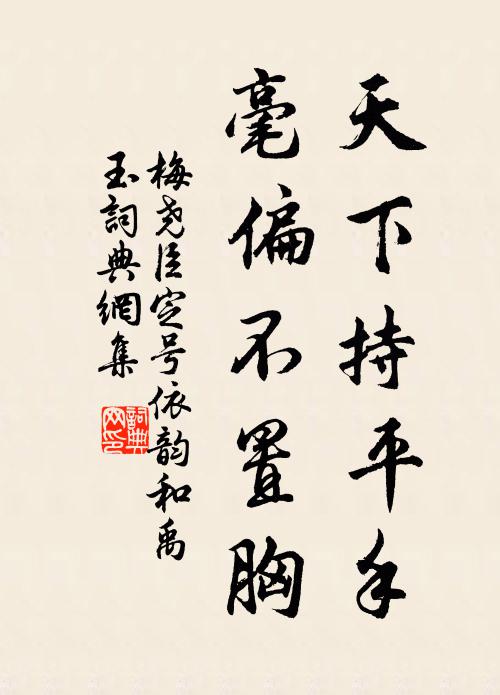 天下持平手
毫偏不置胸
梅尧臣定号依韵和禹
玉詞典網集
詞典
网印